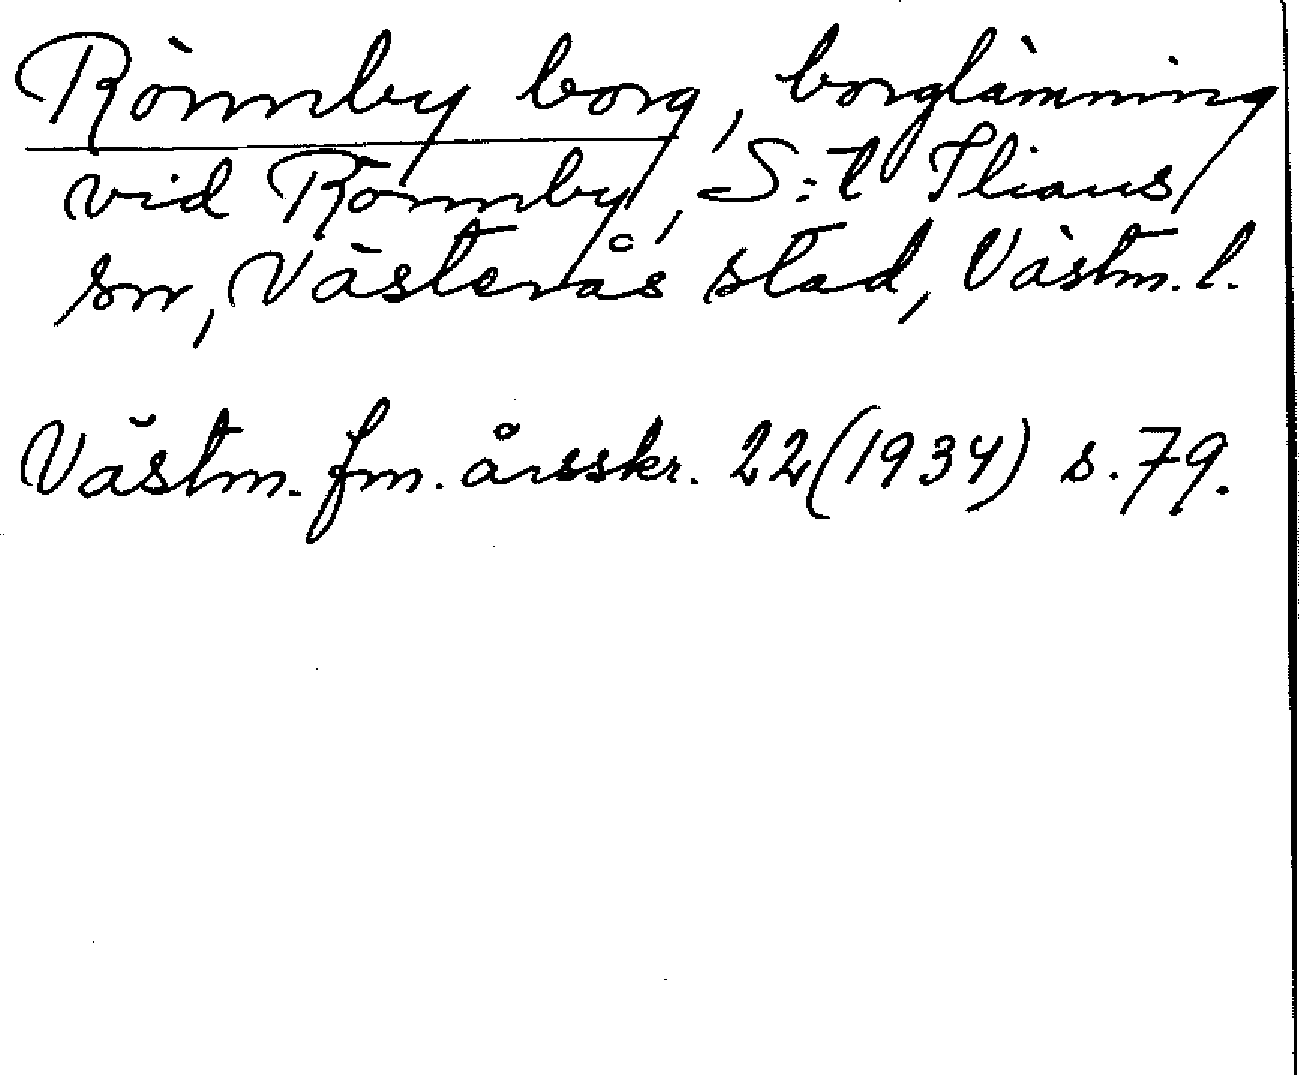 Rönnby borg, borglämning
vid Rönnby, S:t Ilians
sn, Västerås stad, Västm. l.
Västm. fm. årsskr. 22 (1934) s. 79.